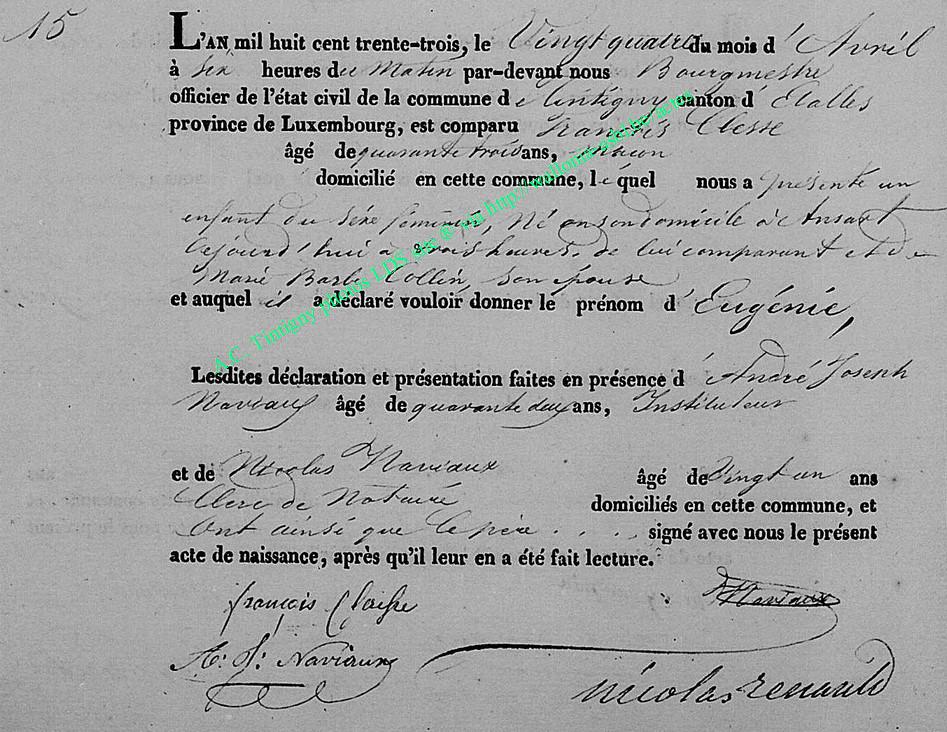 15
L'AN mil huit cent trente-trois, le Vingt quatre du mois d'Avril
à six heures du Matin par-devant nous Bourgmestre
officier de l'état civil de la commune de Tintigny canton d'Etalles
province de Luxembourg, est comparu François Clesse
âgé de quarante trois ans, maçon
domicilié en cette commune, lequel nous a présenté un
enfant du séxe féminin, Né en son domicile à Ansart
cejourd'hui à trois heures, de lui comparant et de
Marie Barbe Collin, son épouse
et auquel il a déclaré vouloir donner le prénom d'Eugénie,
Lesdites déclaration et présentation faites en présence d'André Joseph
Naviaux âgé de quarante deux ans, Instituteur
et de Nicolas Naviaux âgé de Vingt un ans
Clerc de Notaire domiciliés en cette commune, et
Ont ainsi que le père . . . . signé avec nous le présent
acte de naissance, après qu'il leur en a été fait lecture.
françois Claisse
Naviaux
A: J: Naviaux
nicolas renauld
A.C. Tintigny photos LDS via http://wallonie-